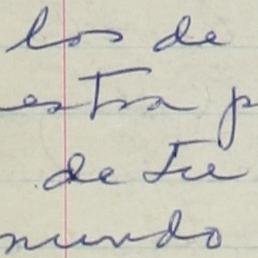 los de
estra p
de tu
mundo